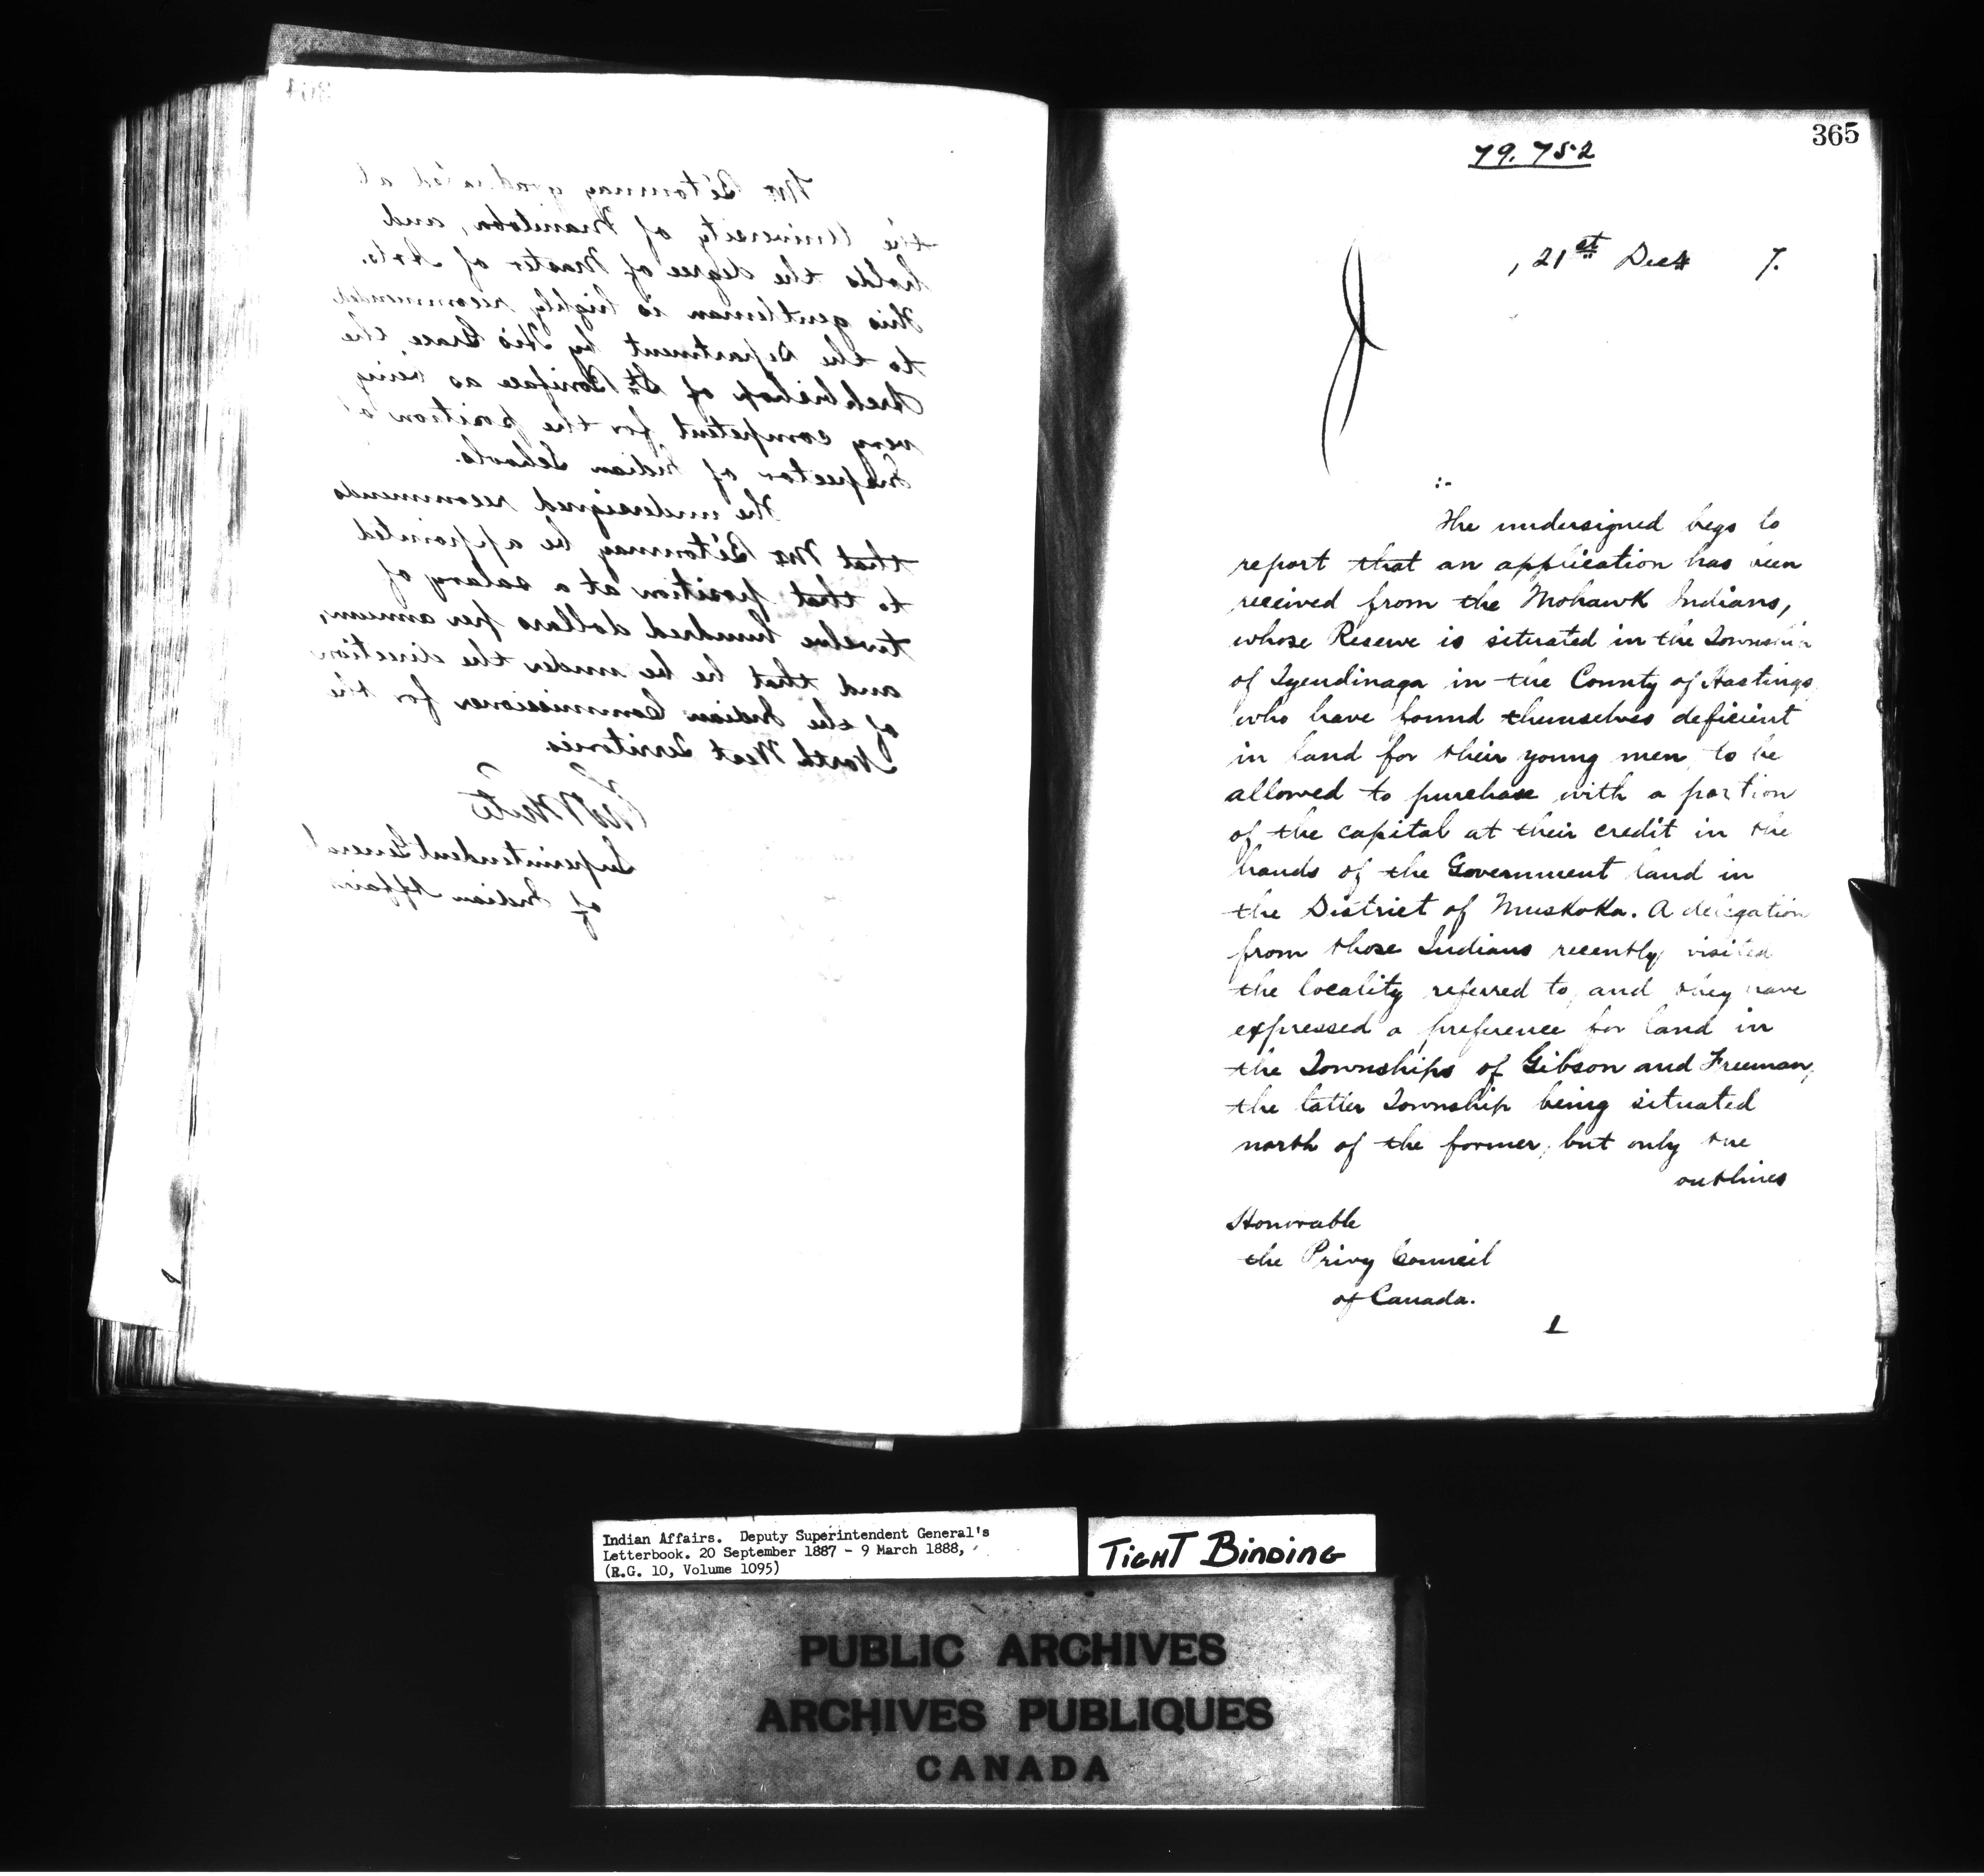 364
Mr. Bétournay graduated at
the University of Manitoba, and
holds the degree of Master of Arts.
This gentleman is highly recommended
to the Department by His Grace, the
Archbishop of St. Boniface as being
very competent for the position of
Inspector of Indian Schools.
The undersigned recommends
that Mr. Bétournay be appointed
to that position at a salary of
twelve hundred dollars per annum,
and that he be under the direction
of the Indian Commissioner for the
North West Territories.
Thos White
Superintendent General
of Indian Affairs
365
79.752
, 21st Decr 7.
:-
The undersigned begs to
report that an application has been
received from the Mohawk Indians,
whose Reserve is situated in the Township
of Tyendinaga in the County of Hastings,
who have found themselves deficient
in land for their young men, to be
allowed to purchase with a portion
of the capital at their credit in the
hands of the Government land in
the District of Muskoka. A delegation
from those Indians recently visited
the locality referred to, and they have
expressed a preference for land in
the Townships of Gibson and Freeman,
the latter Township being situated
north of the former, but only the
outlines
Honorable
the Privy Council
of Canada.
1
Indian Affairs. Deputy Superintendent General's
Letterbook. 20 September 1887 - 9 March 1888,
(R.G. 10, Volume 1095)
TIGHT BINDING
PUBLIC ARCHIVES
ARCHIVES PUBLIQUES
CANADA